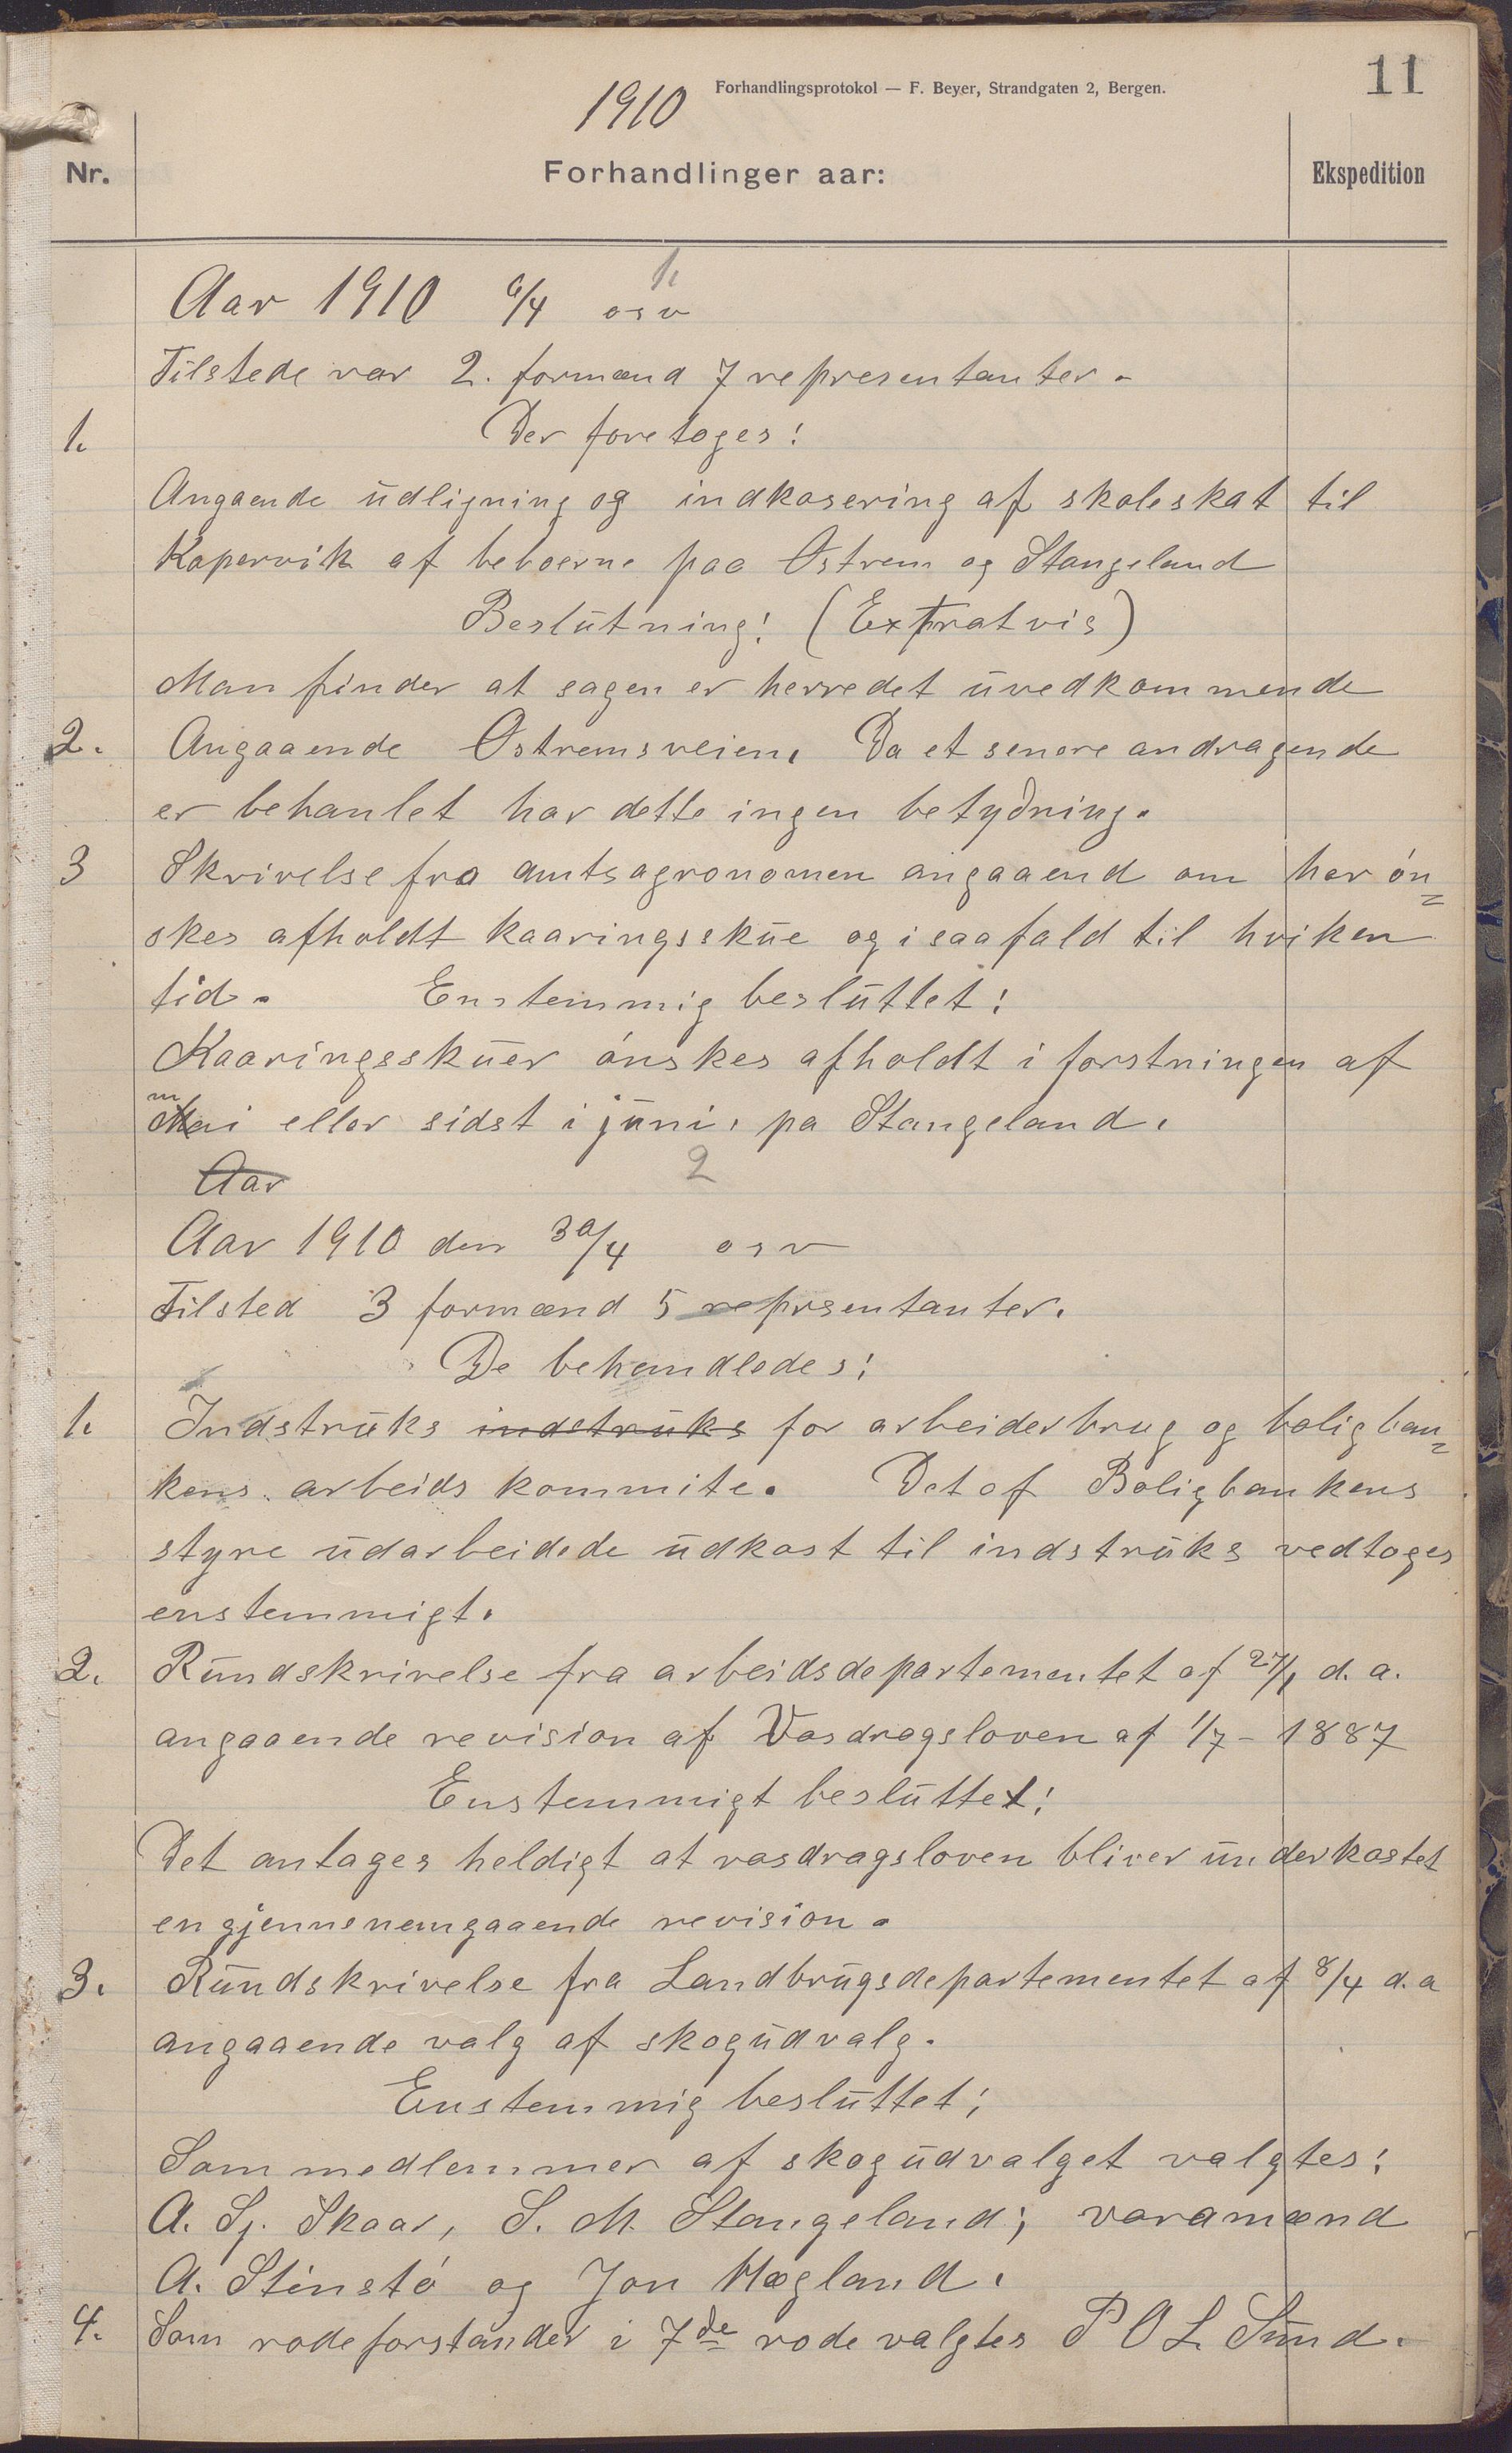 11
Forhandlingsprotokol — F. Beyer, Strandgaten 2, Bergen.
1910
Nr.
Forhandlinger aar:
Ekspedition
1.
Aar 1910 6/4 osv
Tilstede var 2. formænd 7 representanter.
1. Der foretoges:
Angaende udligning og indkasering af skoleskat til
Kopervik af beboerne paa Østrem og Stangeland
Beslutning! (Extratvis)
Man finder at sagen er herredet uvedkommende
2. Angaaende Østremsveien. Da et senere andragende
er behanlet har dette ingen betydning.
3 Skrivelse fra amtsagronomen angaaend om her øn=
skes afholdt kaaringsskue og i saafald til hviken
tid. Enstemmig besluttet:
Kaaringsskuer ønskes afholdt i forstningen af
mai eller sidst i juni. pa Stangeland.
Aar
2
Aar 1910 den 30/4 osv
Tilsted 3 formænd 5 reprsentanter.
De behandledes:
1. Indstruks indstruks for arbeiderbrug og boligban=
kens arbeids kommite. Det af Boligbankens
styre udarbeidede udkast til indstruks vedtoges
enstemmigt.
2. Rundskrivelse fra arbeidsdepartementet af 27/1 d. a.
angaaende revision af Vasdragsloven af 1/7 - 1887
Enstemmigt besluttet:
Det antages heldigt at vasdragsloven bliver underkastet
en gjennemgaaende revision.
3. Rundskrivelse fra Landbrugsdepartementet af 8/4 d. a
angaaende valg af skogudvalg.
Enstemmig besluttet:
Som medlemmer af skogudvalget valgtes:
A. Sj. Skaar, S. M. Stangeland; varamænd
A. Stinstø og Jon Hægland.
4. Som rodeforstander i 7de rode valgtes P O L Sund.